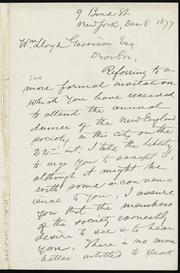 9 Bond St.
New York, Dec 8 1877
Wm Lloyd Garrison Esq
Boston,
Referring to a
more formal invitation
which you have received
to attend the annual
dinner of the New England
society, in this city on the
22nd inst, I take the liberty
to urge you to accept it,
although it might be
with some inconven-
ience to you, I assure
you that the members
of the society earnestly
desire to see & to hear
you, There is no man
better entitled to speak